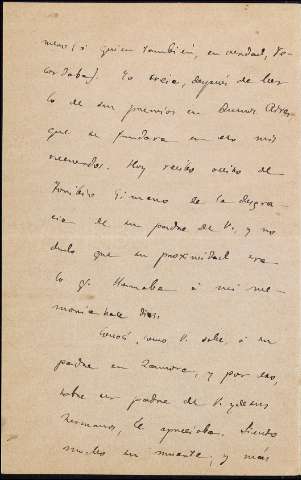 mero (á quien también, en verdad, re-
cordaba). Yo creía, después de leer
lo de sus premios en Buenos Aires
que se fundara en eso mis
recuerdos. Hoy recibo aviso de
Jimeno de la desgra-
cia de su padre de V. y no
dudo que su proximidad era
lo q. llamaba á mi me-
moria hace días.
Conocí, como V. sabe, á su
padre en Zamora, y por eso,
sobre ser padre de V. y de sus
hermanos, le apreciaba. Siento
mucho su muerte, y más